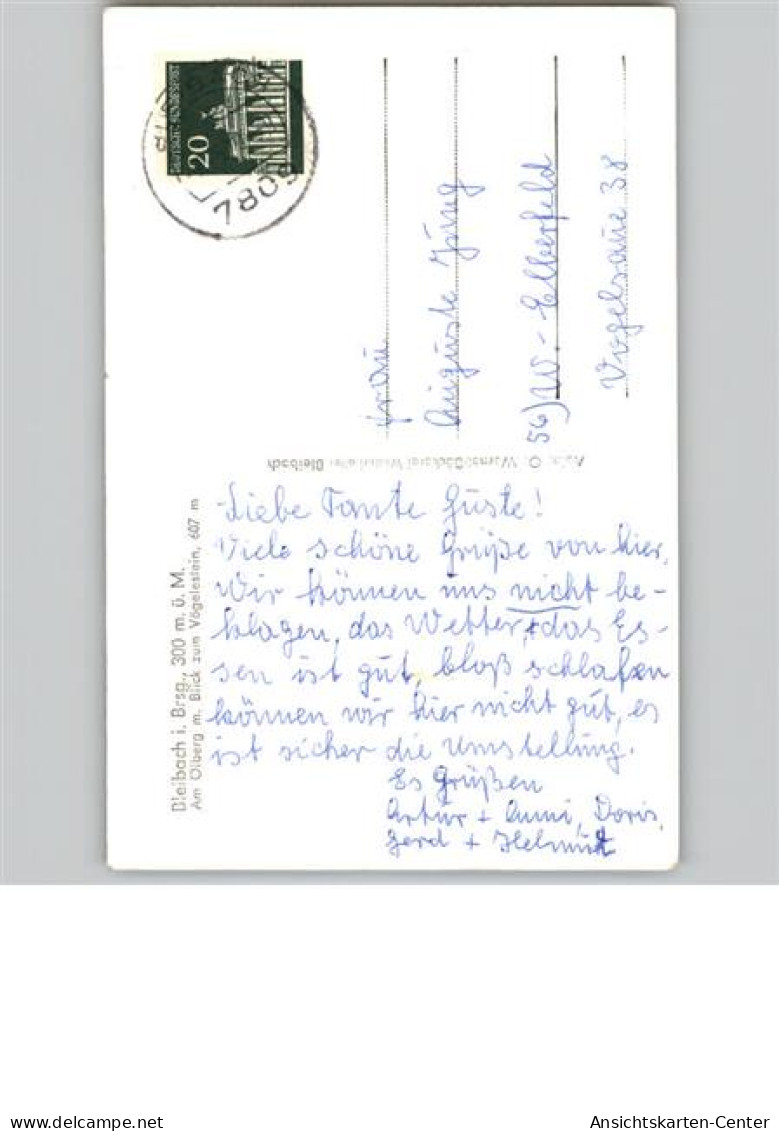 DEUTSCHE BUNDESPOST
20
7809
Frau
Auguste Jung
56) W.-Elberfeld
Vogelsaue 38
Bleibach
Bleibach i. Brsg., 300 m. ü. M.
Am Ölberg m. Blick zum Vögelestein, 607 m
Liebe Tante Guste!
Viele schöne Grüße von hier.
Wir können uns nicht be-
klagen, das Wetter, + das Es-
sen ist gut, bloß schlafen
können wir hier nicht gut, es
ist sicher die Umstellung.
Es Grüßen
Artur + Anni, Doris,
Gerd + Helmut
www.delcampe.net
Ansichtskarten-Center